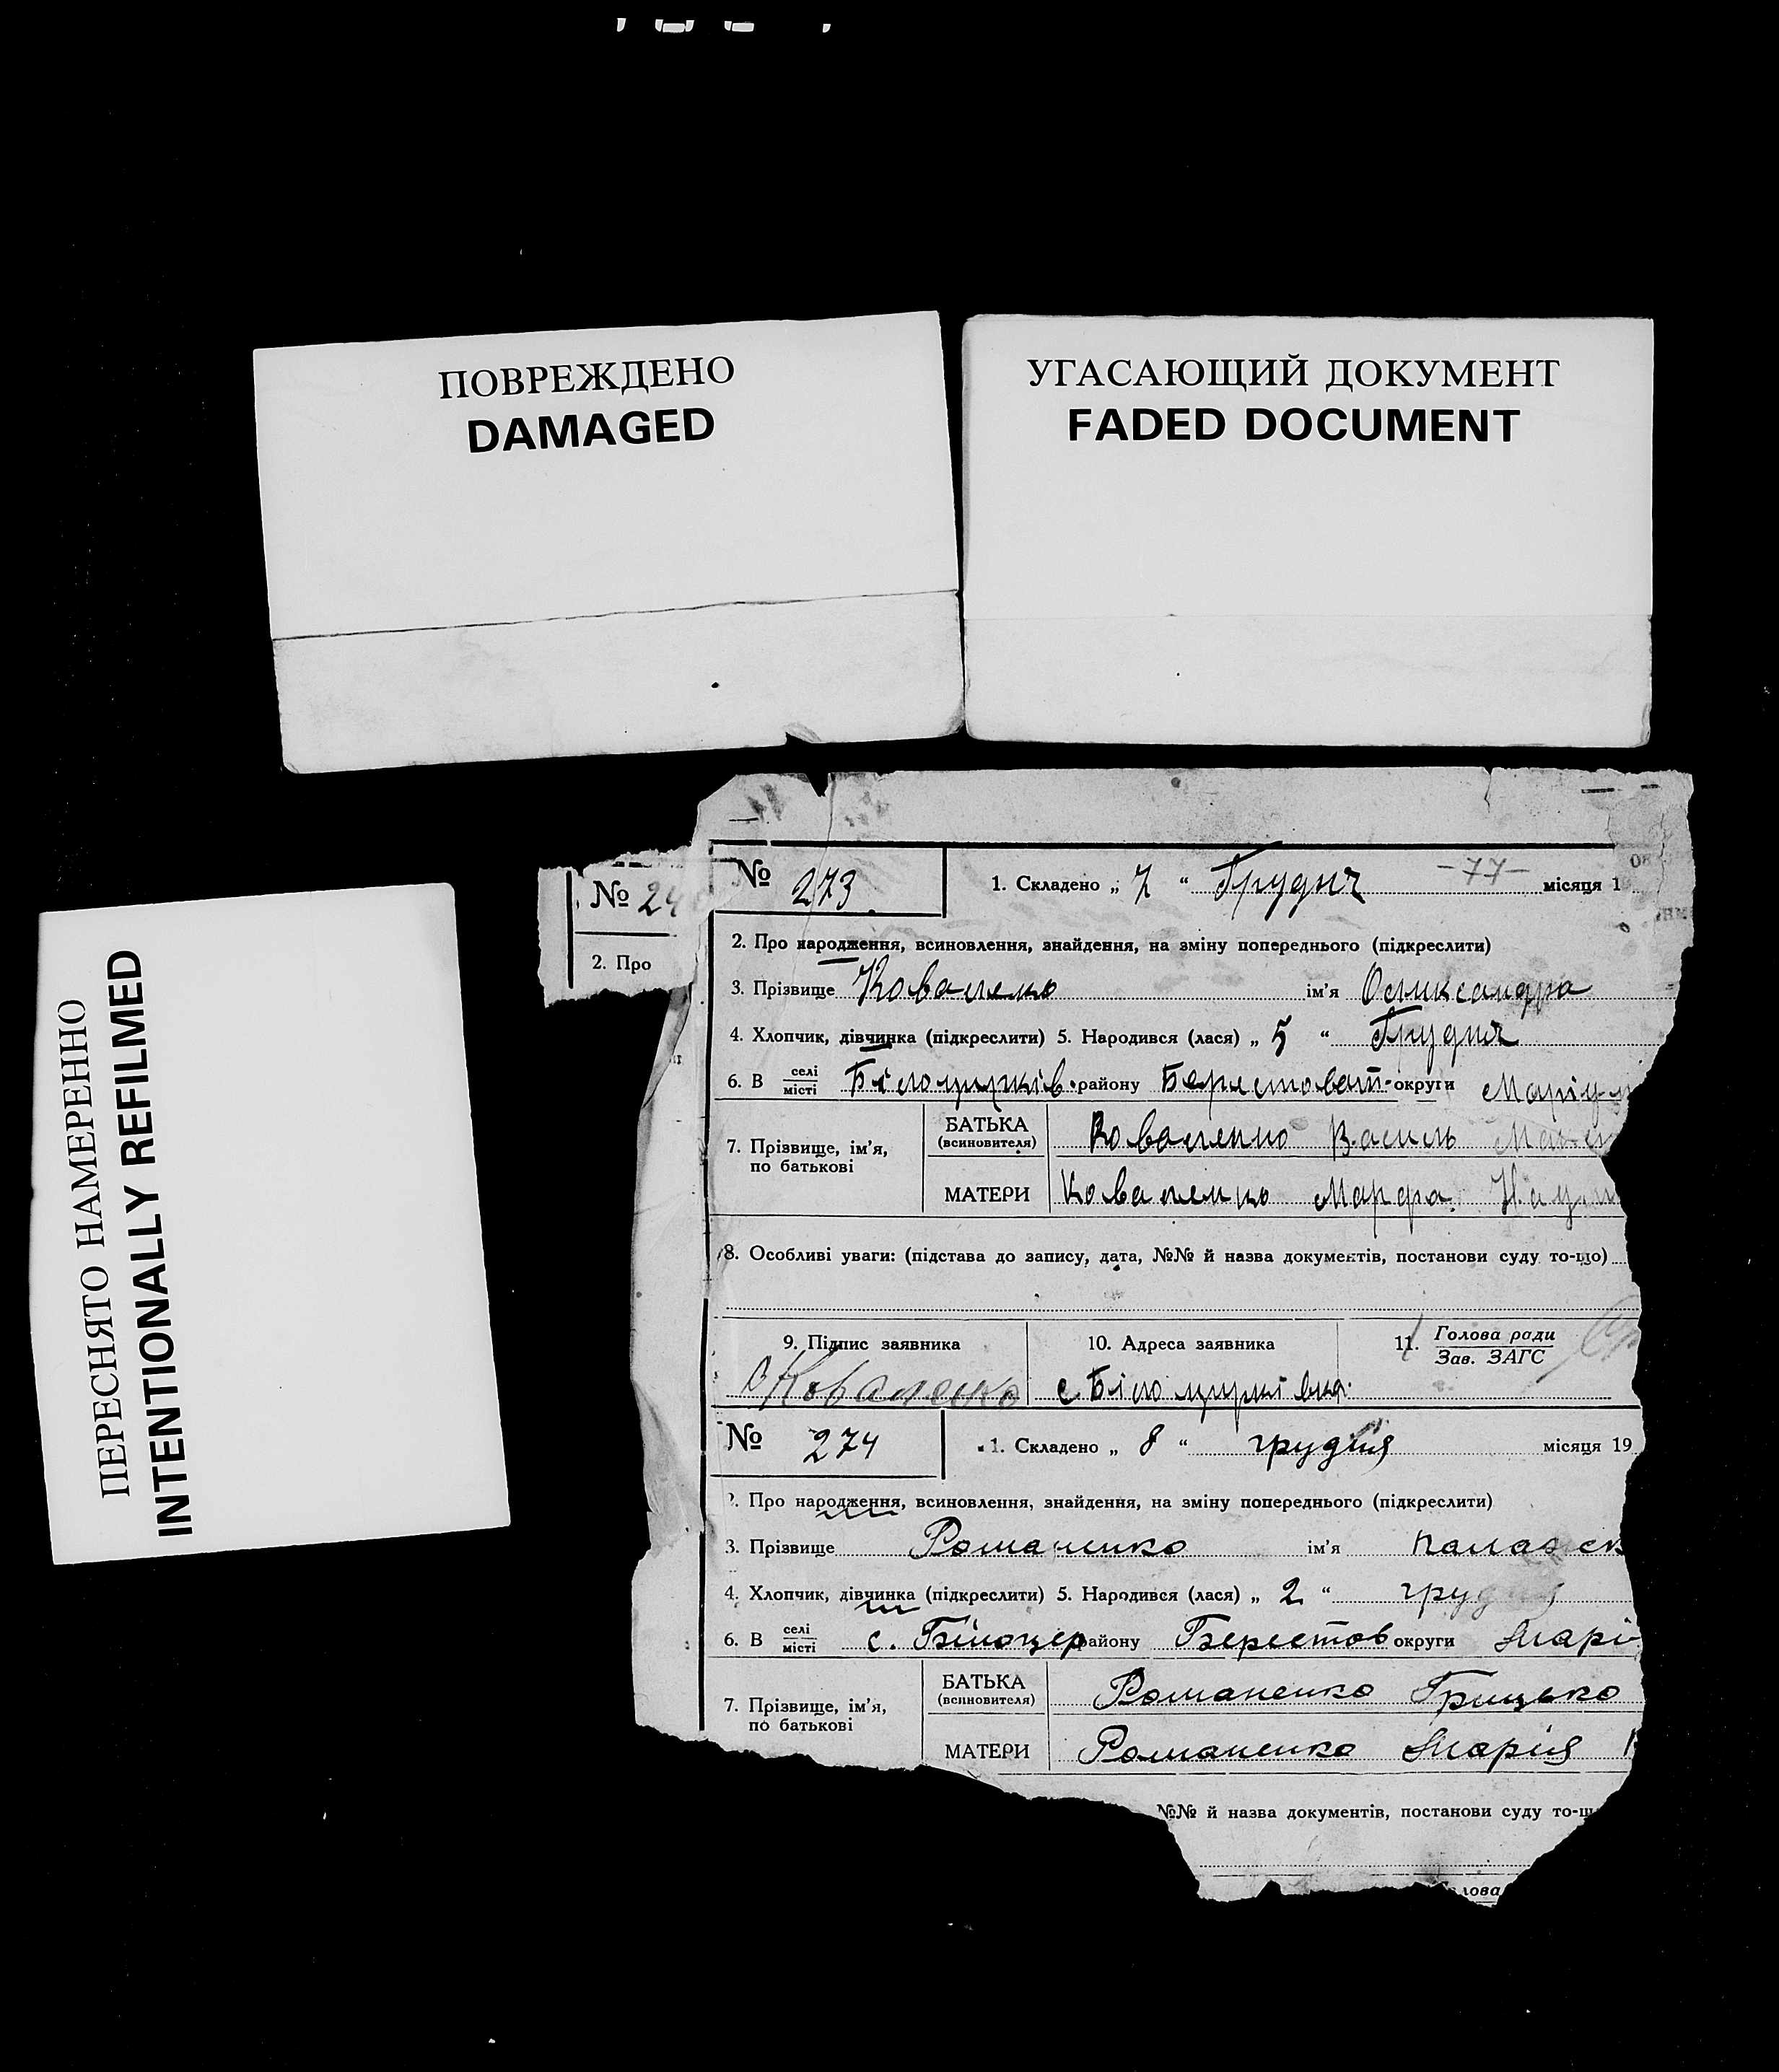 ПОВРЕЖДЕНО
DAMAGED
УГАСАЮЩИЙ ДОКУМЕНТ
FADED DOCUMENT
ПЕРЕСНЯТО НАМЕРЕННО
INTENTIONALLY REFILMED
№ 24
2. Про
№ 273 1. Складено „ 7 “ Грудня -77- місяця 1
2. Про народження, всиновлення, знайдення, на зміну попереднього (підкреслити)
3. Прізвище Коваленко ім’я Олександра
4. Хлопчик, дівчинка (підкреслити) 5. Народився (лася) „ 5 “ Грудня
6. В селі місті Білоцерків. району Берестоват. округи Маріу
7. Прізвище, ім’я, по батькові
БАТЬКА (всиновителя) Коваленко Василь
МАТЕРИ Коваленко Марфа
8. Особливі уваги: (підстава до запису, дата, №№ й назва документів, постанови суду то-що)
9. Підпис заявника 10. Адреса заявника 11. Голова ради Зав. ЗАГС
В Коваленко с. Білоцерківка.
№ 274 1. Складено „ 8 “ грудня місяця 19
2. Про народження, всиновлення, знайдення, на зміну попереднього (підкреслити)
3. Прізвище Романенко ім’я
4. Хлопчик, дівчинка (підкреслити) 5. Народився (лася) „ 2 “ груд
6. В селі місті с. Білоцер району Берестов округи Марі
7. Прізвище, ім’я, по батькові
БАТЬКА (всиновителя) Романенко Грицько
МАТЕРИ Романенко Марія
№№ й назва документів, постанови суду то-щ
лова